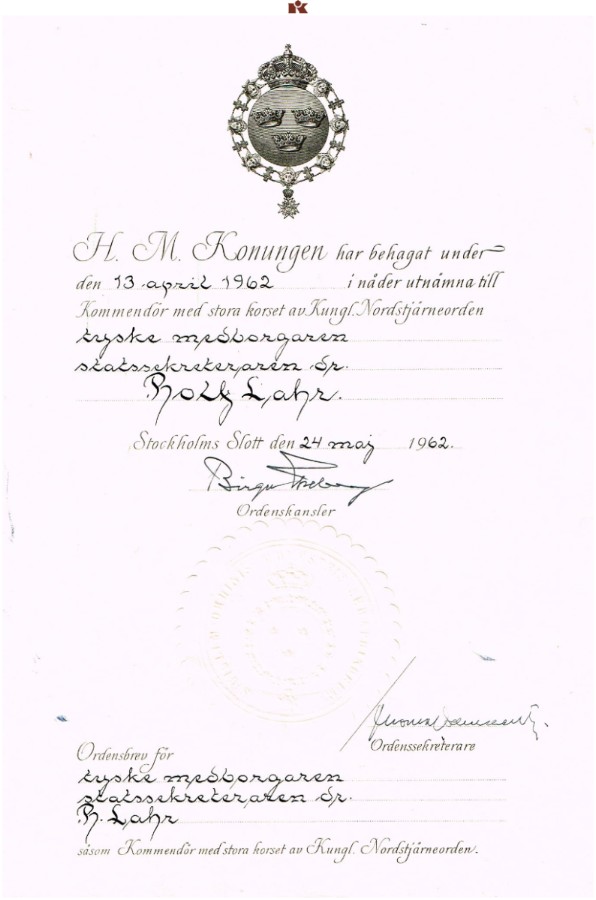 H. M. Konungen har behagat under
den 13 april 1962 i nåder utnämna till
Kommendör med stora korset av Kungl. Nordstjärneorden
tyske medborgaren
statssekreteraren dr.
Rolf Lahr.
Stockholms Slott den 24 maj 1962.
Birger Ekeberg
Ordenskansler
Ordenssekreterare
Ordensbrev för
tyske medborgaren
statssekreteraren dr.
R. Lahr
såsom Kommendör med stora korset av Kungl. Nordstjärneorden.